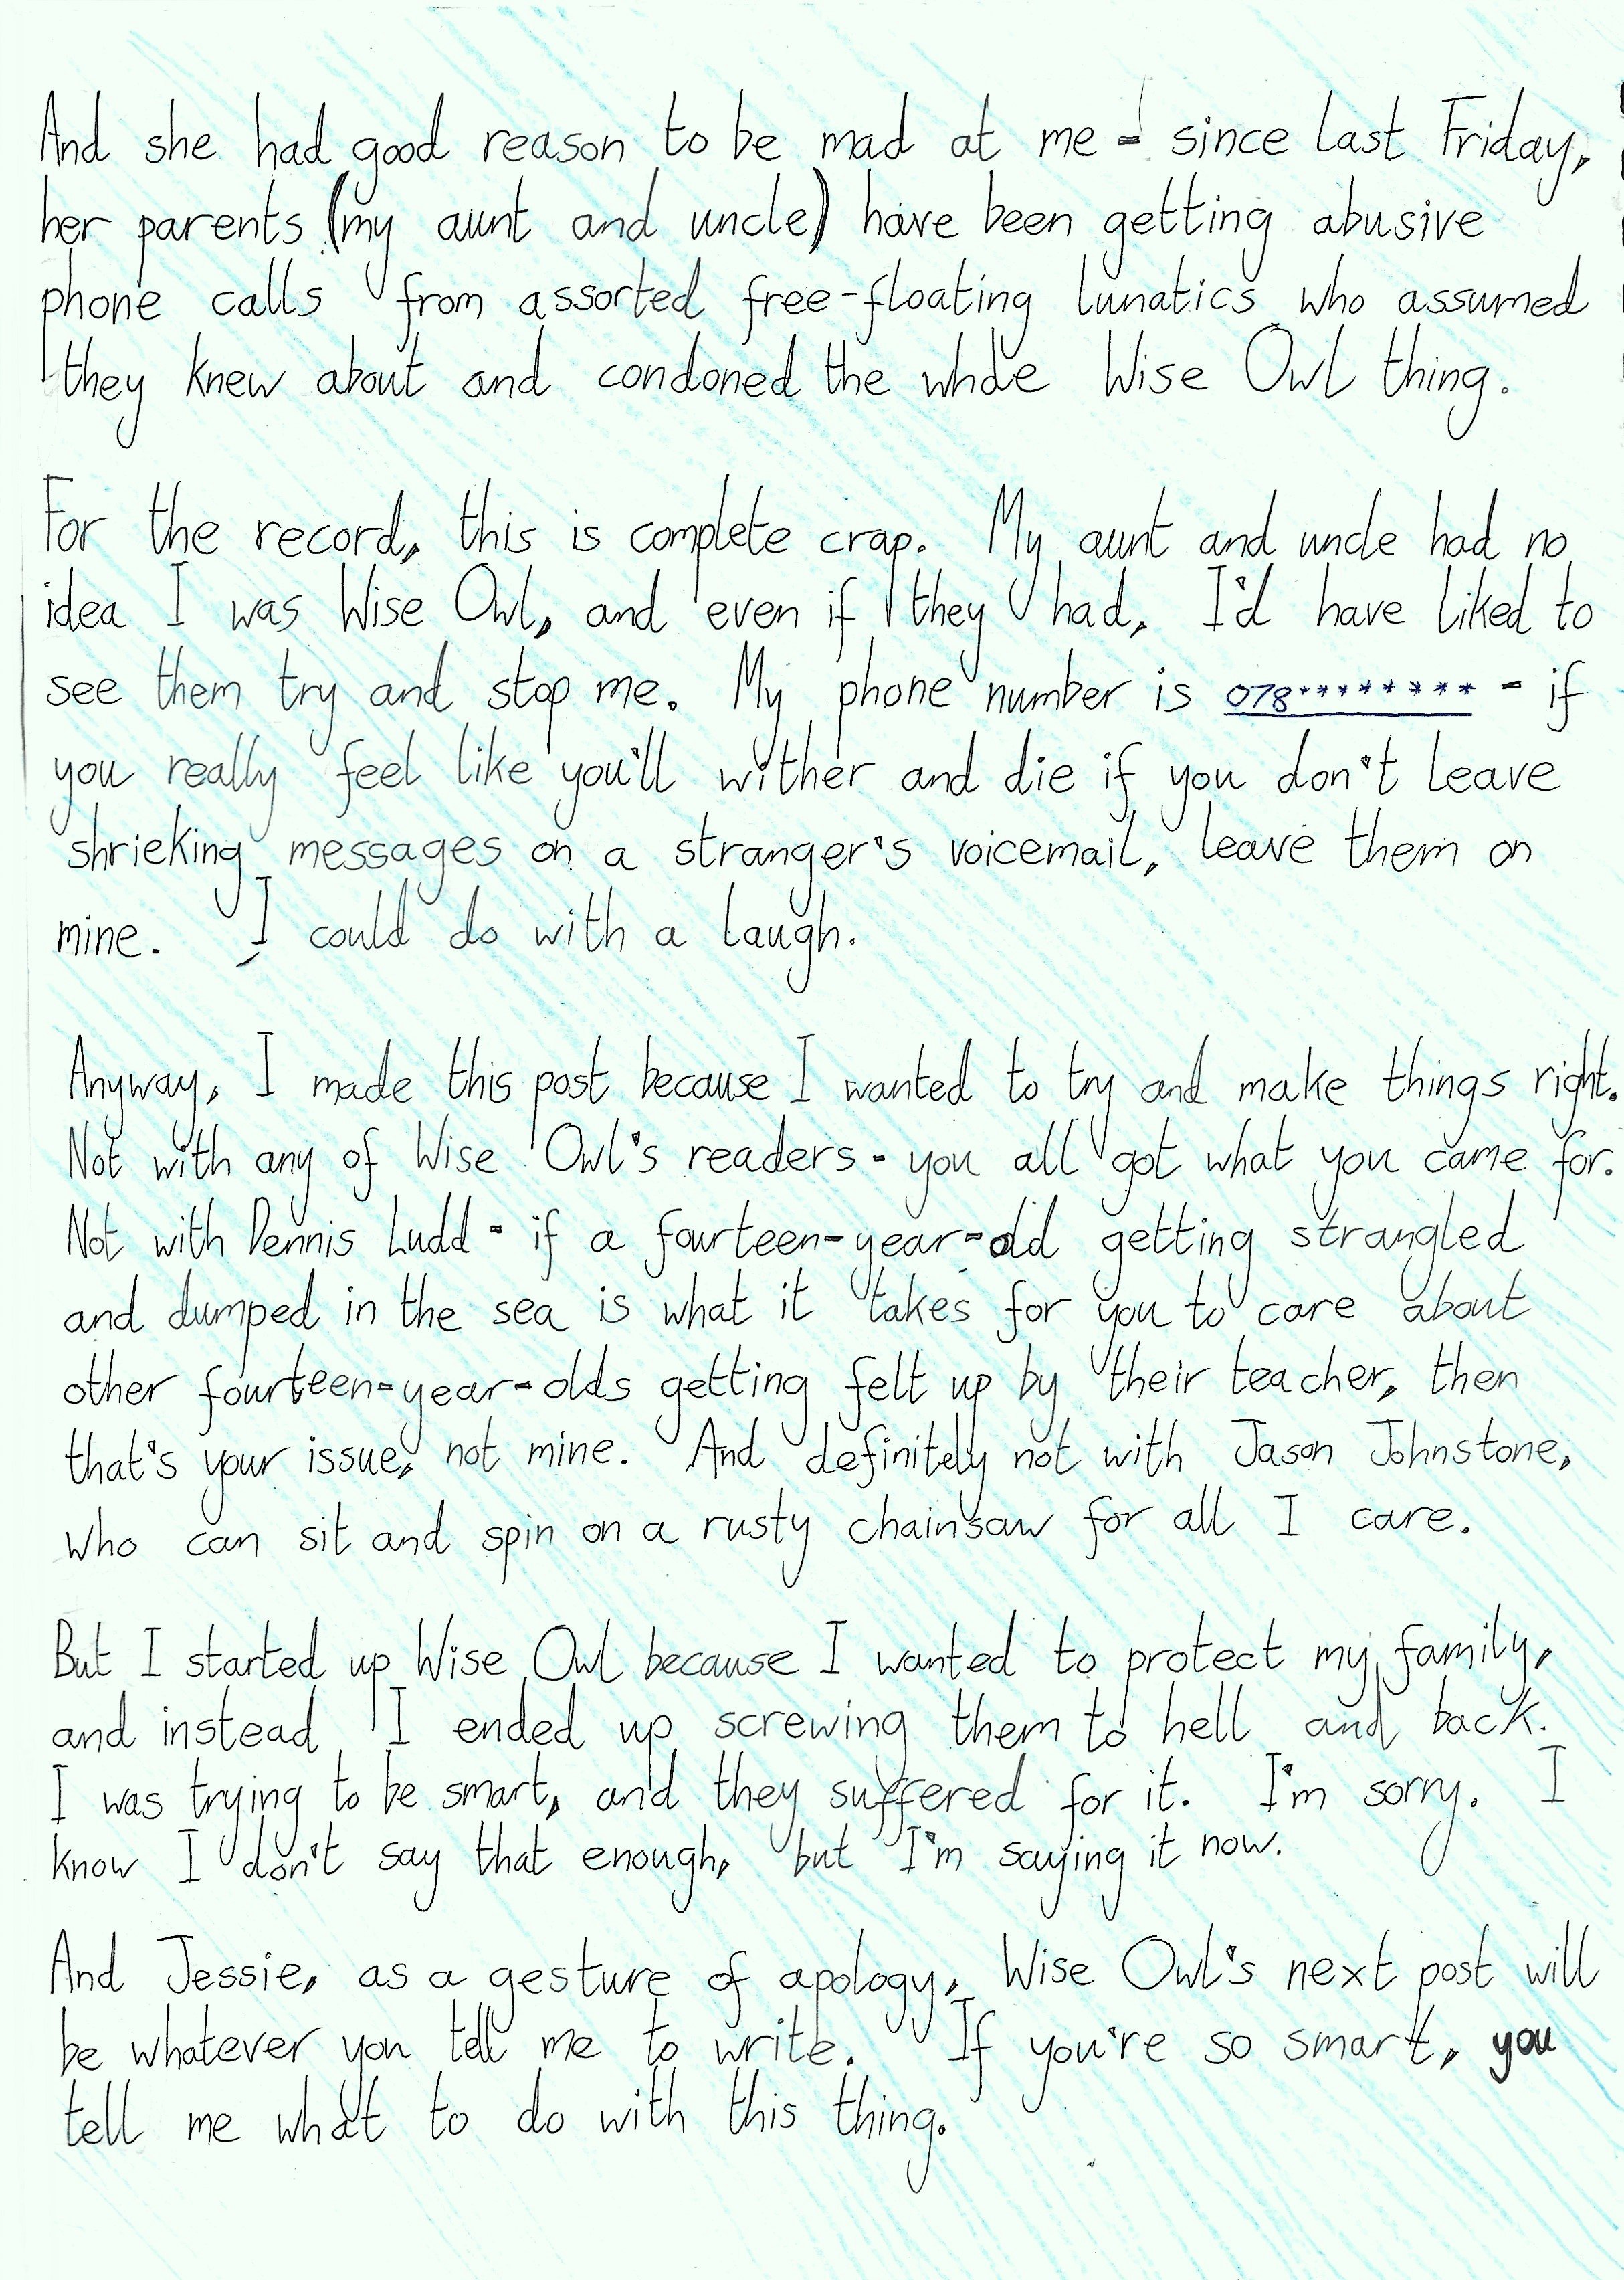 And she had good reason to be mad at me - since last Friday,
her parents (my aunt and uncle) have been getting abusive
phone calls from assorted free-floating lunatics who assumed
they knew about and condoned the whole Wise Owl thing.
For the record, this is complete crap. My aunt and uncle had no
idea I was Wise Owl, and even if they had, I'd have liked to
see them try and stop me. My phone number is 078******** - if
you really feel like you'll wither and die if you don't leave
shrieking messages on a stranger's voicemail, leave them on
mine. I could do with a laugh.
Anyway, I made this post because I wanted to try and make things right.
Not with any of Wise Owl's readers - you all got what you came for.
Not with Dennis Ludd - if a fourteen-year-old getting strangled
and dumped in the sea is what it takes for you to care about
other fourteen-year-olds getting felt up by their teacher, then
that's your issue, not mine. And definitely not with Jason Johnstone,
who can sit and spin on a rusty chainsaw for all I care.
But I started up Wise Owl because I wanted to protect my family,
and instead I ended up screwing them to hell and back.
I was trying to be smart, and they suffered for it. I'm sorry. I
know I don't say that enough, but I'm saying it now.
And Jessie, as a gesture of apology, Wise Owl's next post will
be whatever you tell me to write. If you're so smart, you
tell me what to do with this thing.